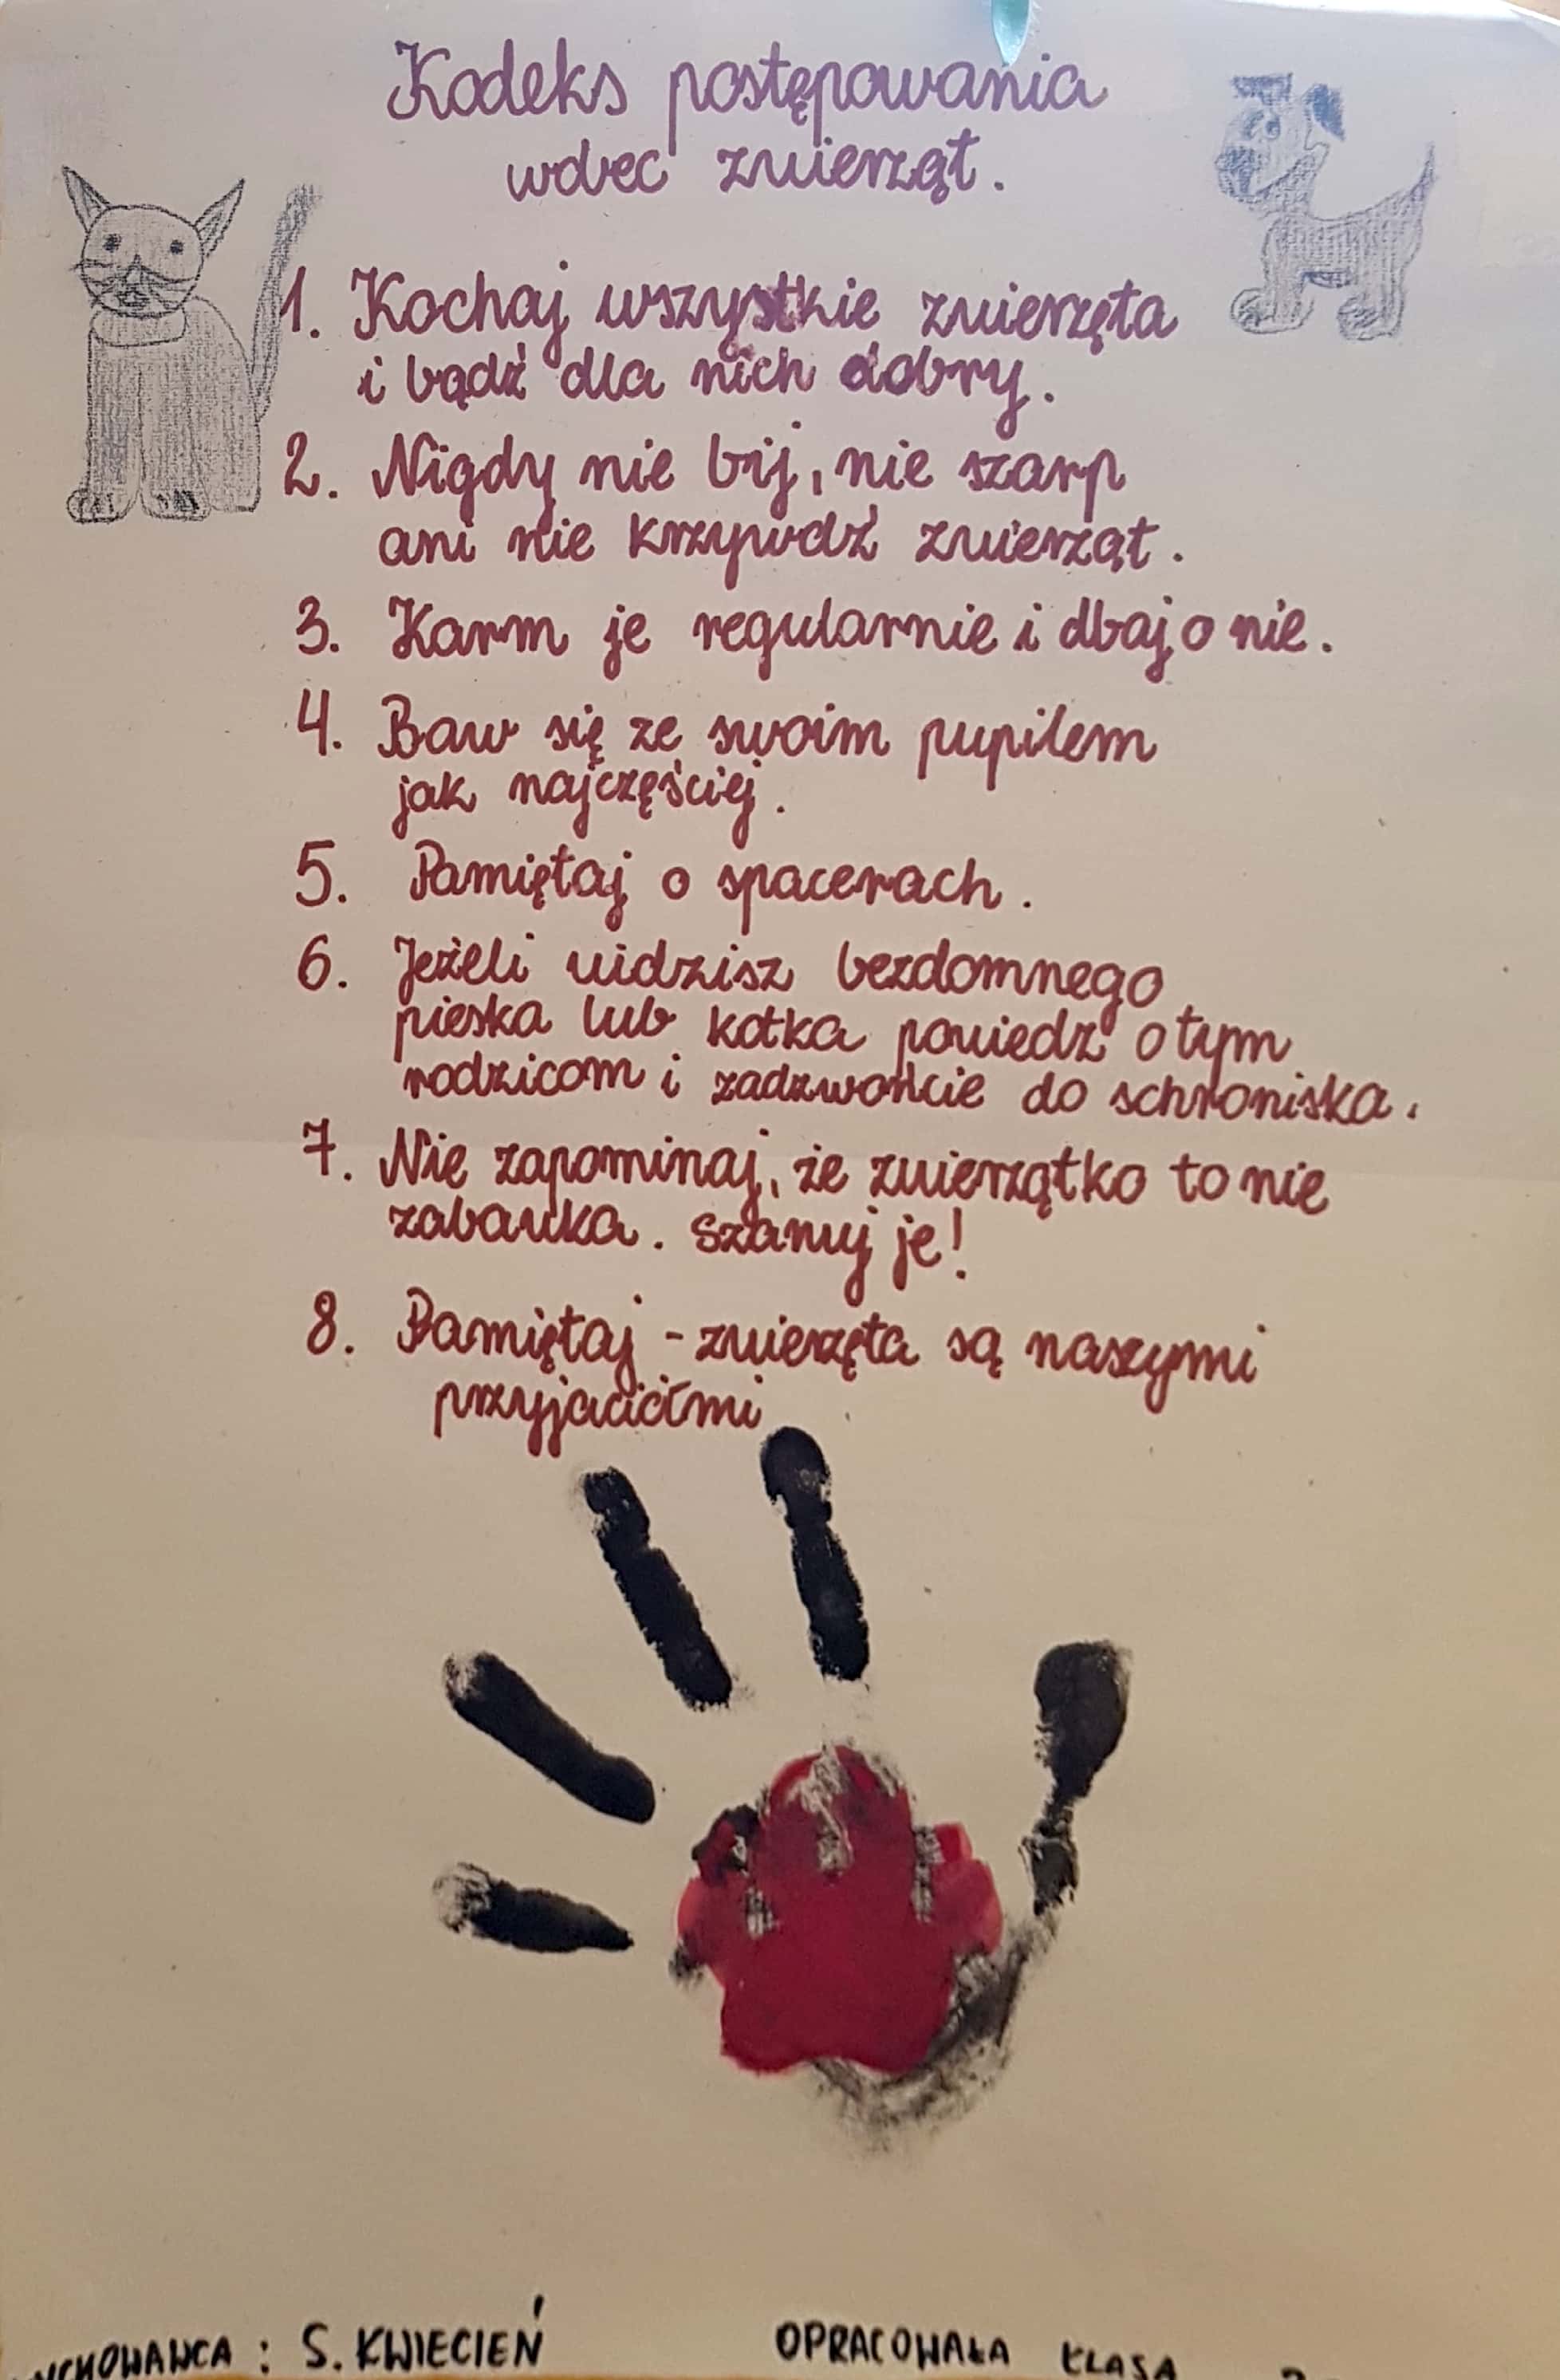 Kodeks postępowania
wobec zwierząt.
1. Kochaj wszystkie zwierzęta
i bądź dla nich dobry.
2. Nigdy nie bij, nie szarp
ani nie krzywdź zwierząt.
3. Karm je regularnie i dbaj o nie.
4. Baw się ze swoim pupilem
jak najczęściej.
5. Pamiętaj o spacerach.
6. Jeżeli widzisz bezdomnego
pieska lub kotka powiedz o tym
rodzicom i zadzwońcie do schroniska.
7. Nie zapominaj, że zwierzątko to nie
zabawka. Szanuj je!
8. Pamiętaj - zwierzęta są naszymi
przyjaciółmi
WYCHOWAWCA : S. KWIECIEŃ
OPRACOWAŁA KLASA